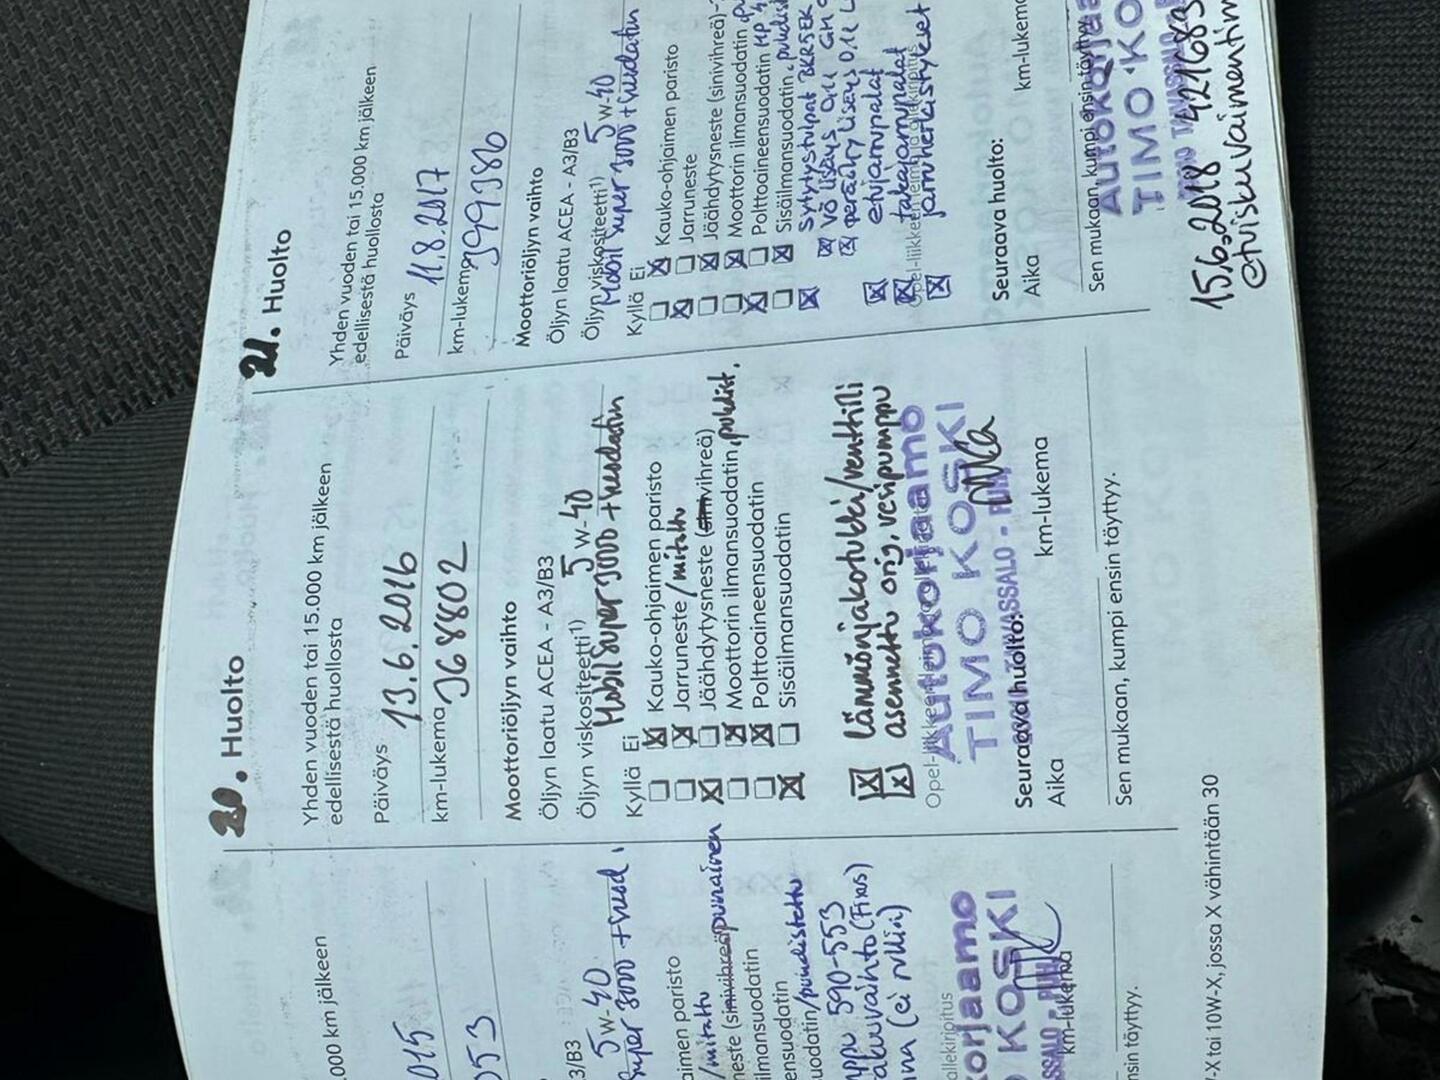 000 km jälkeen
015
053
A3/B3
5W-40
Super 3000 + suod.
aimen paristo
/mitattu
neste (sinivihreä) punainen
ilmansuodatin
ensuodatin
suodatin/puhdistettu
590-553
(ei rullia)
allekirjoitus
korjaamo
KOSKI
km-lukema
ensin täyttyy.
W-X tai 10W-X, jossa X vähintään 30
20. Huolto
Yhden vuoden tai 15.000 km jälkeen
edellisestä huollosta
Päiväys 13.6.2016
km-lukema 368802
Moottoriöljyn vaihto
Öljyn laatu ACEA - A3/B3
Öljyn viskositeetti¹) 5W-40
Mobil Super 3000 + suodatin
Kyllä Ei
Kauko-ohjaimen paristo
Jarruneste/mitattu
Jäähdytysneste (sinivihreä)
Moottorin ilmansuodatin, puhdist.
Polttoaineensuodatin
Sisäilmansuodatin
lämmönjakotukki/venttiili
asennettu orig. vesipumppu
Autokorjaamo
TIMO KOSKI
Seuraava huolto:
Aika km-lukema
Sen mukaan, kumpi ensin täyttyy.
21. Huolto
Yhden vuoden tai 15.000 km jälkeen
edellisestä huollosta
Päiväys 11.8.2017
km-lukema 399386
Moottoriöljyn vaihto
Öljyn laatu ACEA - A3/B3
Öljyn viskositeetti¹) 5W-40
Mobil Super 3000 + suodatin
Kyllä Ei
Kauko-ohjaimen paristo
Jarruneste
Jäähdytysneste (sinivihreä)
Moottorin ilmansuodatin
Polttoaineensuodatin
Sisäilmansuodatin, puhdist
Sytytystulpat
VÖ lisäys 0,1 l
peräöljy lisäys 0,1 L
etujarrupalat
takajarrupalat
Seuraava huolto:
Aika km-lukema
Sen mukaan kumpi ensin täyttyy
Autokorjaa
TIMO KO
15.6.2018 421683
etuiskuvaimentim